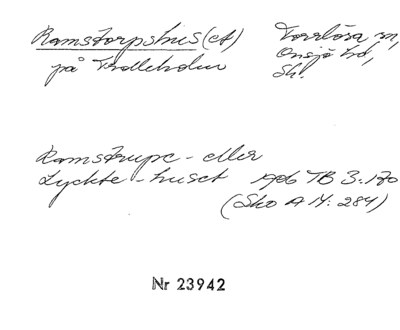 Ramstorpshus(et) Torrlösa sn,
på Trolleholm Onsjö hd,
Sk.
Ramstrupe- eller
Lyckte-huset 1906 TB 3:170
(Sko A M: 284)
Nr 23942